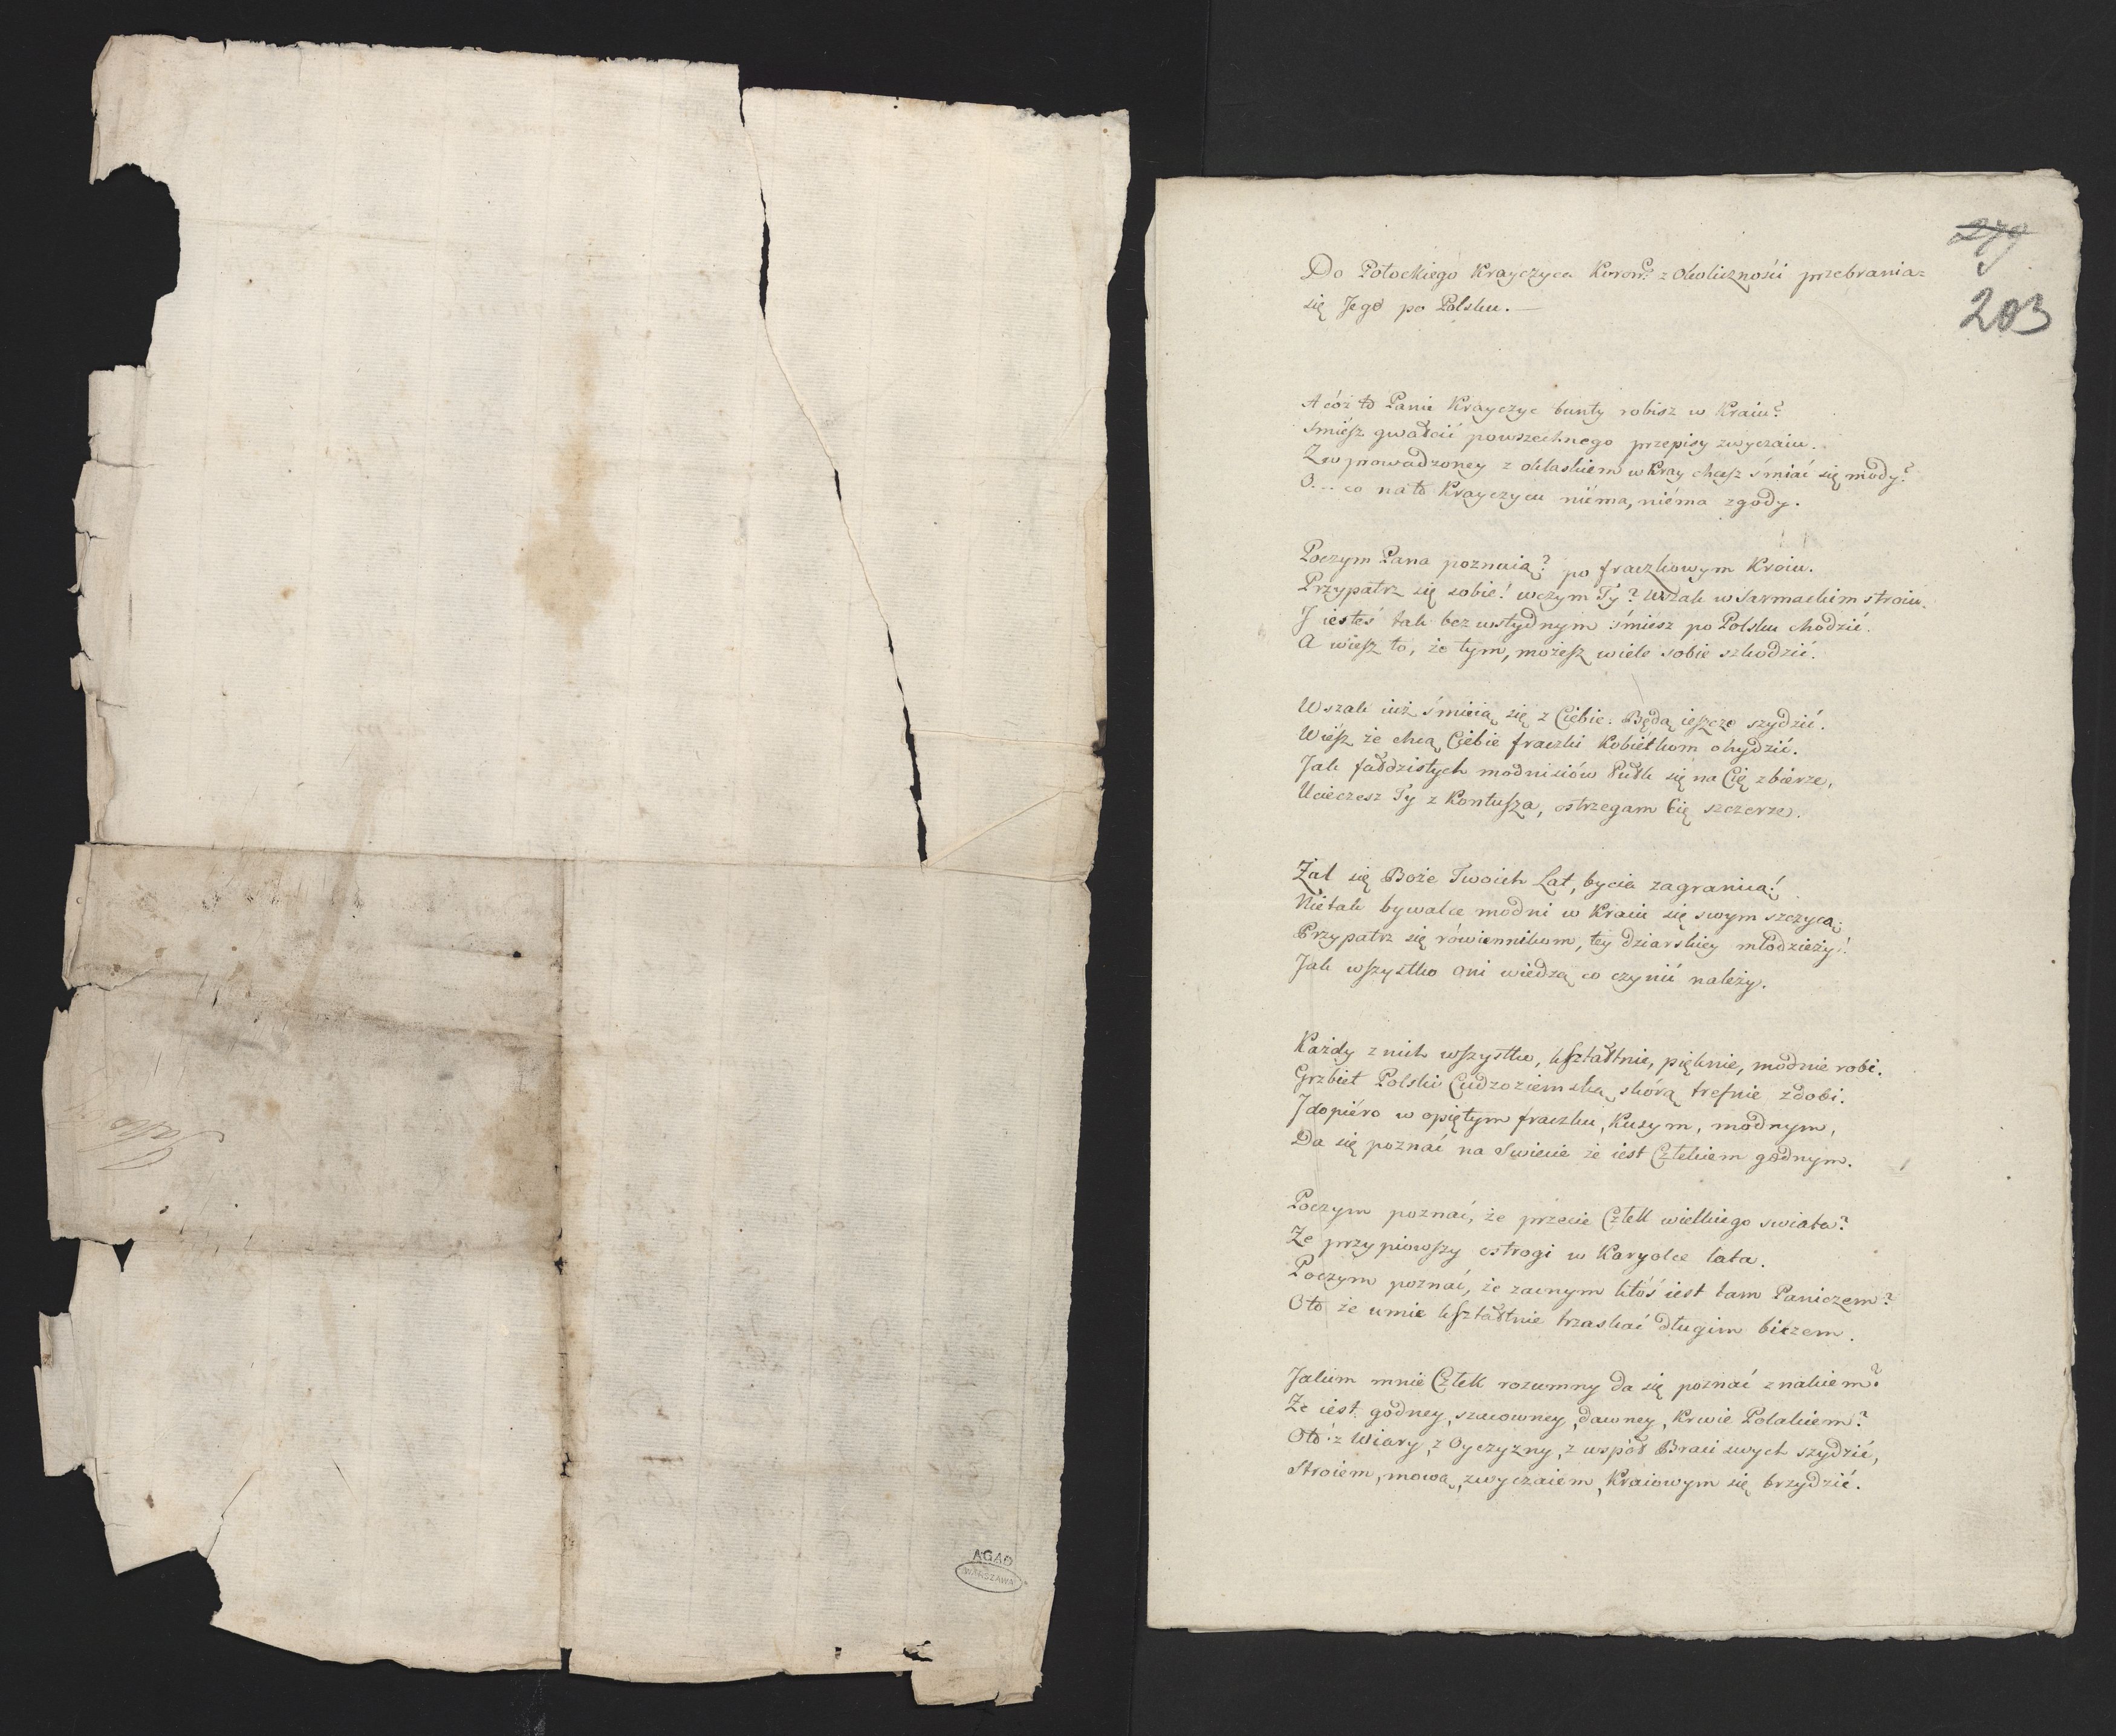 AGAD
WARSZAWA
279
203
Do Potockiego Krayczyca Koron: z Okoliczności przebrania=
się Jego po Polsku. —
A cóż to Panie Krayczyc bunty robisz w Kraiu?
Smiesz gwałcić powszechnego przepisy zwyczaiu.
Zwprowadzoney z oklaskiem w Kray chcesz śmiać się mody?
O... co na to Krayczycu niéma, niéma zgody.
Poczym Pana poznaią? po fraczkowym Kroiu.
Przypatrz się sobie! wczym Ty? Wszak w Sarmackim stroiu.
J iesteś tak bezwstydnym śmiesz po Polsku chodzić.
A wiesz to, że tym, możesz wiele sobie szkodzić.
Wszak iuż śmieią się z Ciebie. Będą ieszcze szydzić.
Wiész że chcą Ciebie fraczki Kobietkom ohydzić.
Jak fałdzistych modnisiów Pułk się na Cię zbierze,
Ucieczesz Ty z Kontusza, ostrzegam Cię szczerze.
Żal się Boże Twoich Lat, bycia zagranicą!
Nietak bywalce modni w Kraiu się swym szczycą;
Przypatrz się rówiennikom, tey dziarskiey młodzieży!
Jak wszystko oni wiedzą co czynić należy.
Każdy z nich wszystko, kształtnie, pięknie, modnie robi.
Grzbiet Polski Cudzoziemską skórą trefnie zdobi.
J dopiéro w opiętym fraczku, Kusym, modnym,
Da się poznać na Swiecie że iest Człekiem godnym.
Poczym poznać, że przecie Człek wielkiego swiata?
Że przypiowszy ostrogi w Karyolce lata.
Poczym poznać, że zacnym ktoś iest tam Paniczem?
Oto że umie kształtnie trzaskać długim biczem.
Jakim mnie Człek rozumny da się poznać znakiem?
Że iest godney, szacowney, dawney, Krwie Polakiem?
Oto z Wiary, z Oyczyzny, z współ Braci swych szydzić,
Stroiem, mową, zwyczaiem, Kraiowym się brzydzić.